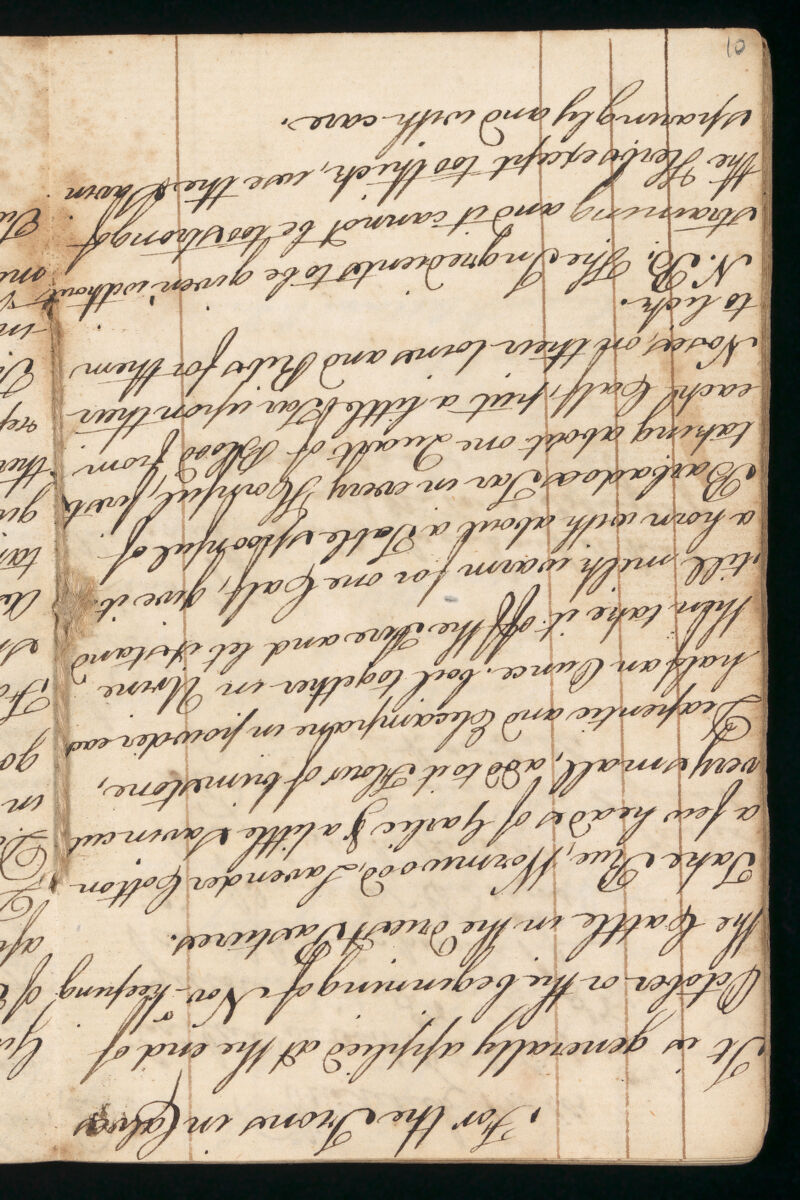 For the Irons in Calves
It is generally applied at the end of
October or the beginning of Novr. keeping
the Cattle in the driest Pastures.
Take Rue, Wormwood, Lavender Cotton
a few heads of Garlic & a little Savin cut
very small, add to it Flour of brimstone,
Diapentie and Elecampane in powder each
half an Ounce. boil together in Urine
then take it off the Fire and let it stand
till milk warm for one Calf, give it
a horn with about a Table spoonful of
Barbadoes Tar in every Hornful, first
taking about one Quart of Blood from
each Calf, put a little Tar upon their
Noses, on their loins and Ribs for them
to lick.
N.B. The Ingredients to be given without
straining and it cannot be too strong of
the Herbs except too thick, use the Savin
sparingly and with care.
10